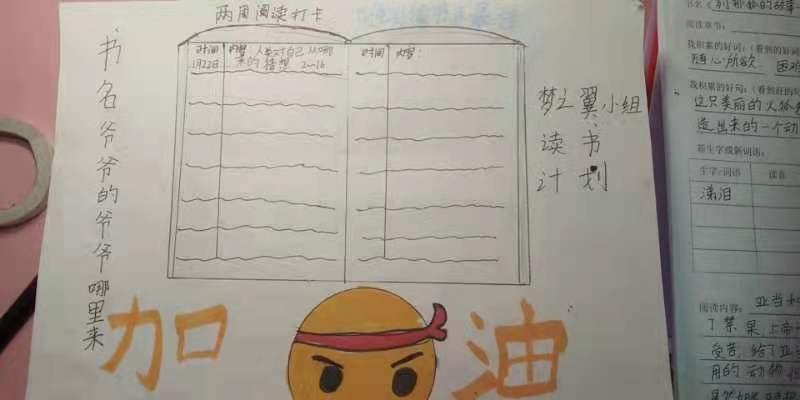 两周阅读打卡
书名爷爷的爷爷哪里来
时间 内容 人类对自己从哪
1月22日 来的猜想 2~16
时间 内容:
梦之翼小组
读书
计划
加油
书名
阅读章节:
我积累的好词:(看到的好词
随心所欲 困难
我积累的好句:(看到好的句
这只美丽的火狐
造出来的一个动
新生字或新词语:
生字/词语 读音
潸泪
阅读内容: 亚当和
了禁果 上帝
受苦, 给了亚
用的动物